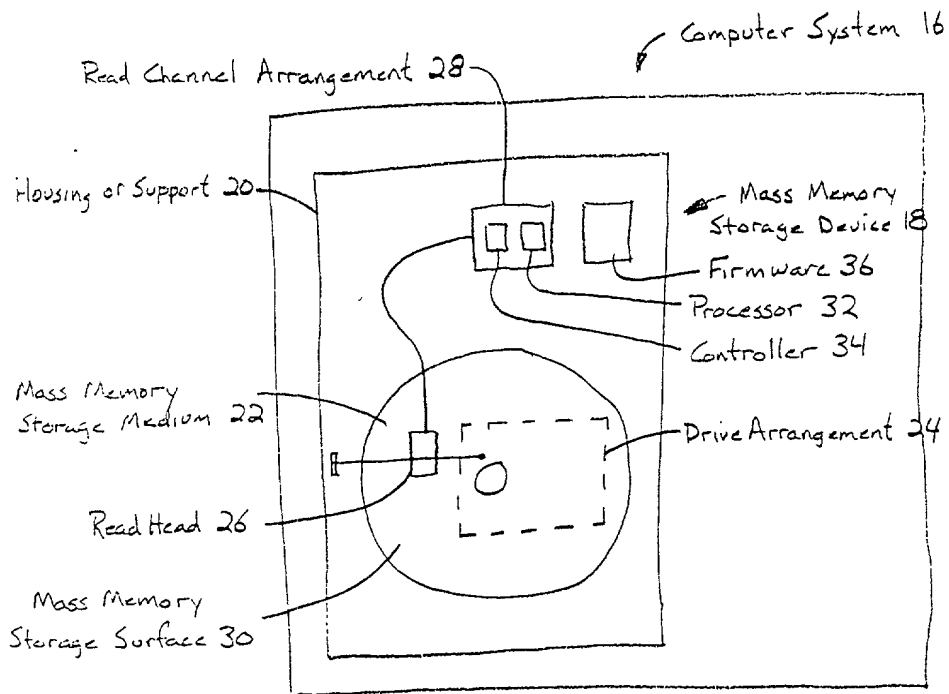 Computer System 16
Read Channel Arrangement 28
Housing or Support 20
Mass Memory
Storage Device 18
Firmware 36
Processor 32
Controller 34
Mass Memory
Storage Medium 22
Drive Arrangement 24
Read Head 26
Mass Memory
Storage Surface 30